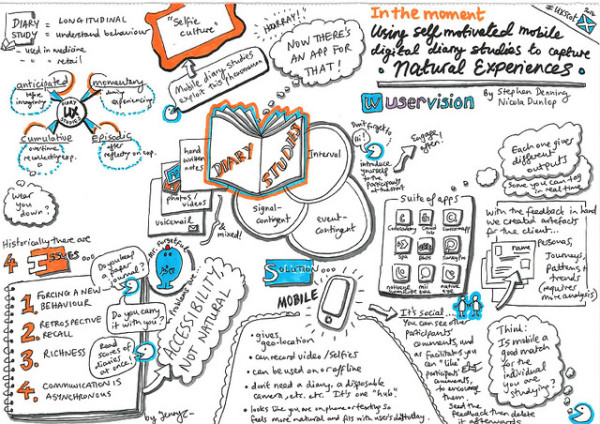 DIARY STUDY = LONGITUDINAL
= understand behaviour
used in medicine
" " retail
"Selfie
culture"
Mobile diary studies
exploit this phenomenon
HOORAY!
NOW THERE'S
AN APP FOR
THAT!
In the moment
Using self motivated mobile
digital diary studies to capture
Natural Experiences
#UXScot
2014
uservision
By Stephen Denning
Nicola Dunlop
anticipated
before
imagining
momentary
during
experiencing
DIARY
UX
STUDIES
cumulative
overtime
recollecting exp.
Episodic
after
reflect on exp.
Wear
you down?
DIARY STUDIES
hand
written
notes
photos/
videos
voicemail
& mixed!
Interval
Signal-
contingent
Event-
contingent
Don't forget to
Hi!
introduce
yourself
to the
participants
at start
Engage
often.
Each one gives
different
outputs
Some you can tag
in real time
Suite of apps
Contextually
Crowd
lab
Contextmapp
Spa
paco
Survey
me
With the feedback in hand
we created artefacts
for the client...
name
Personas,
Journeys,
Patterns +
trends
(requires
more analysis)
Historically there are
4 ISSUES...
1. FORCING A NEW
BEHAVIOUR
2. RETROSPECTIVE
RECALL
3. RICHNESS
4. COMMUNICATION IS
ASYNCHRONOUS
Do you keep
a paper
journal?
Do you carry
it with you?
Read
scores of
diaries
at once!
Mr. Forgetful
Problems are...
ACCESSIBILITY,
NOT NATURAL
SOLUTION...
MOBILE
• gives
geo-location
• can record video / selfies
• can be used on or offline
• don't need a diary, a disposable
camera, etc. etc. It's one "hub".
• looks like you are on phone or texting so
feels more natural and fits with user's digital day.
It's social...
You can see other
participants'
comments,
and as
facilitators you
can "like"
participants'
comments,
to encourage
them.
Seed the
feedback then delete
it afterwards
Think:
Is mobile a
good match
for the
individual
you are
studying?
by Jenny C-